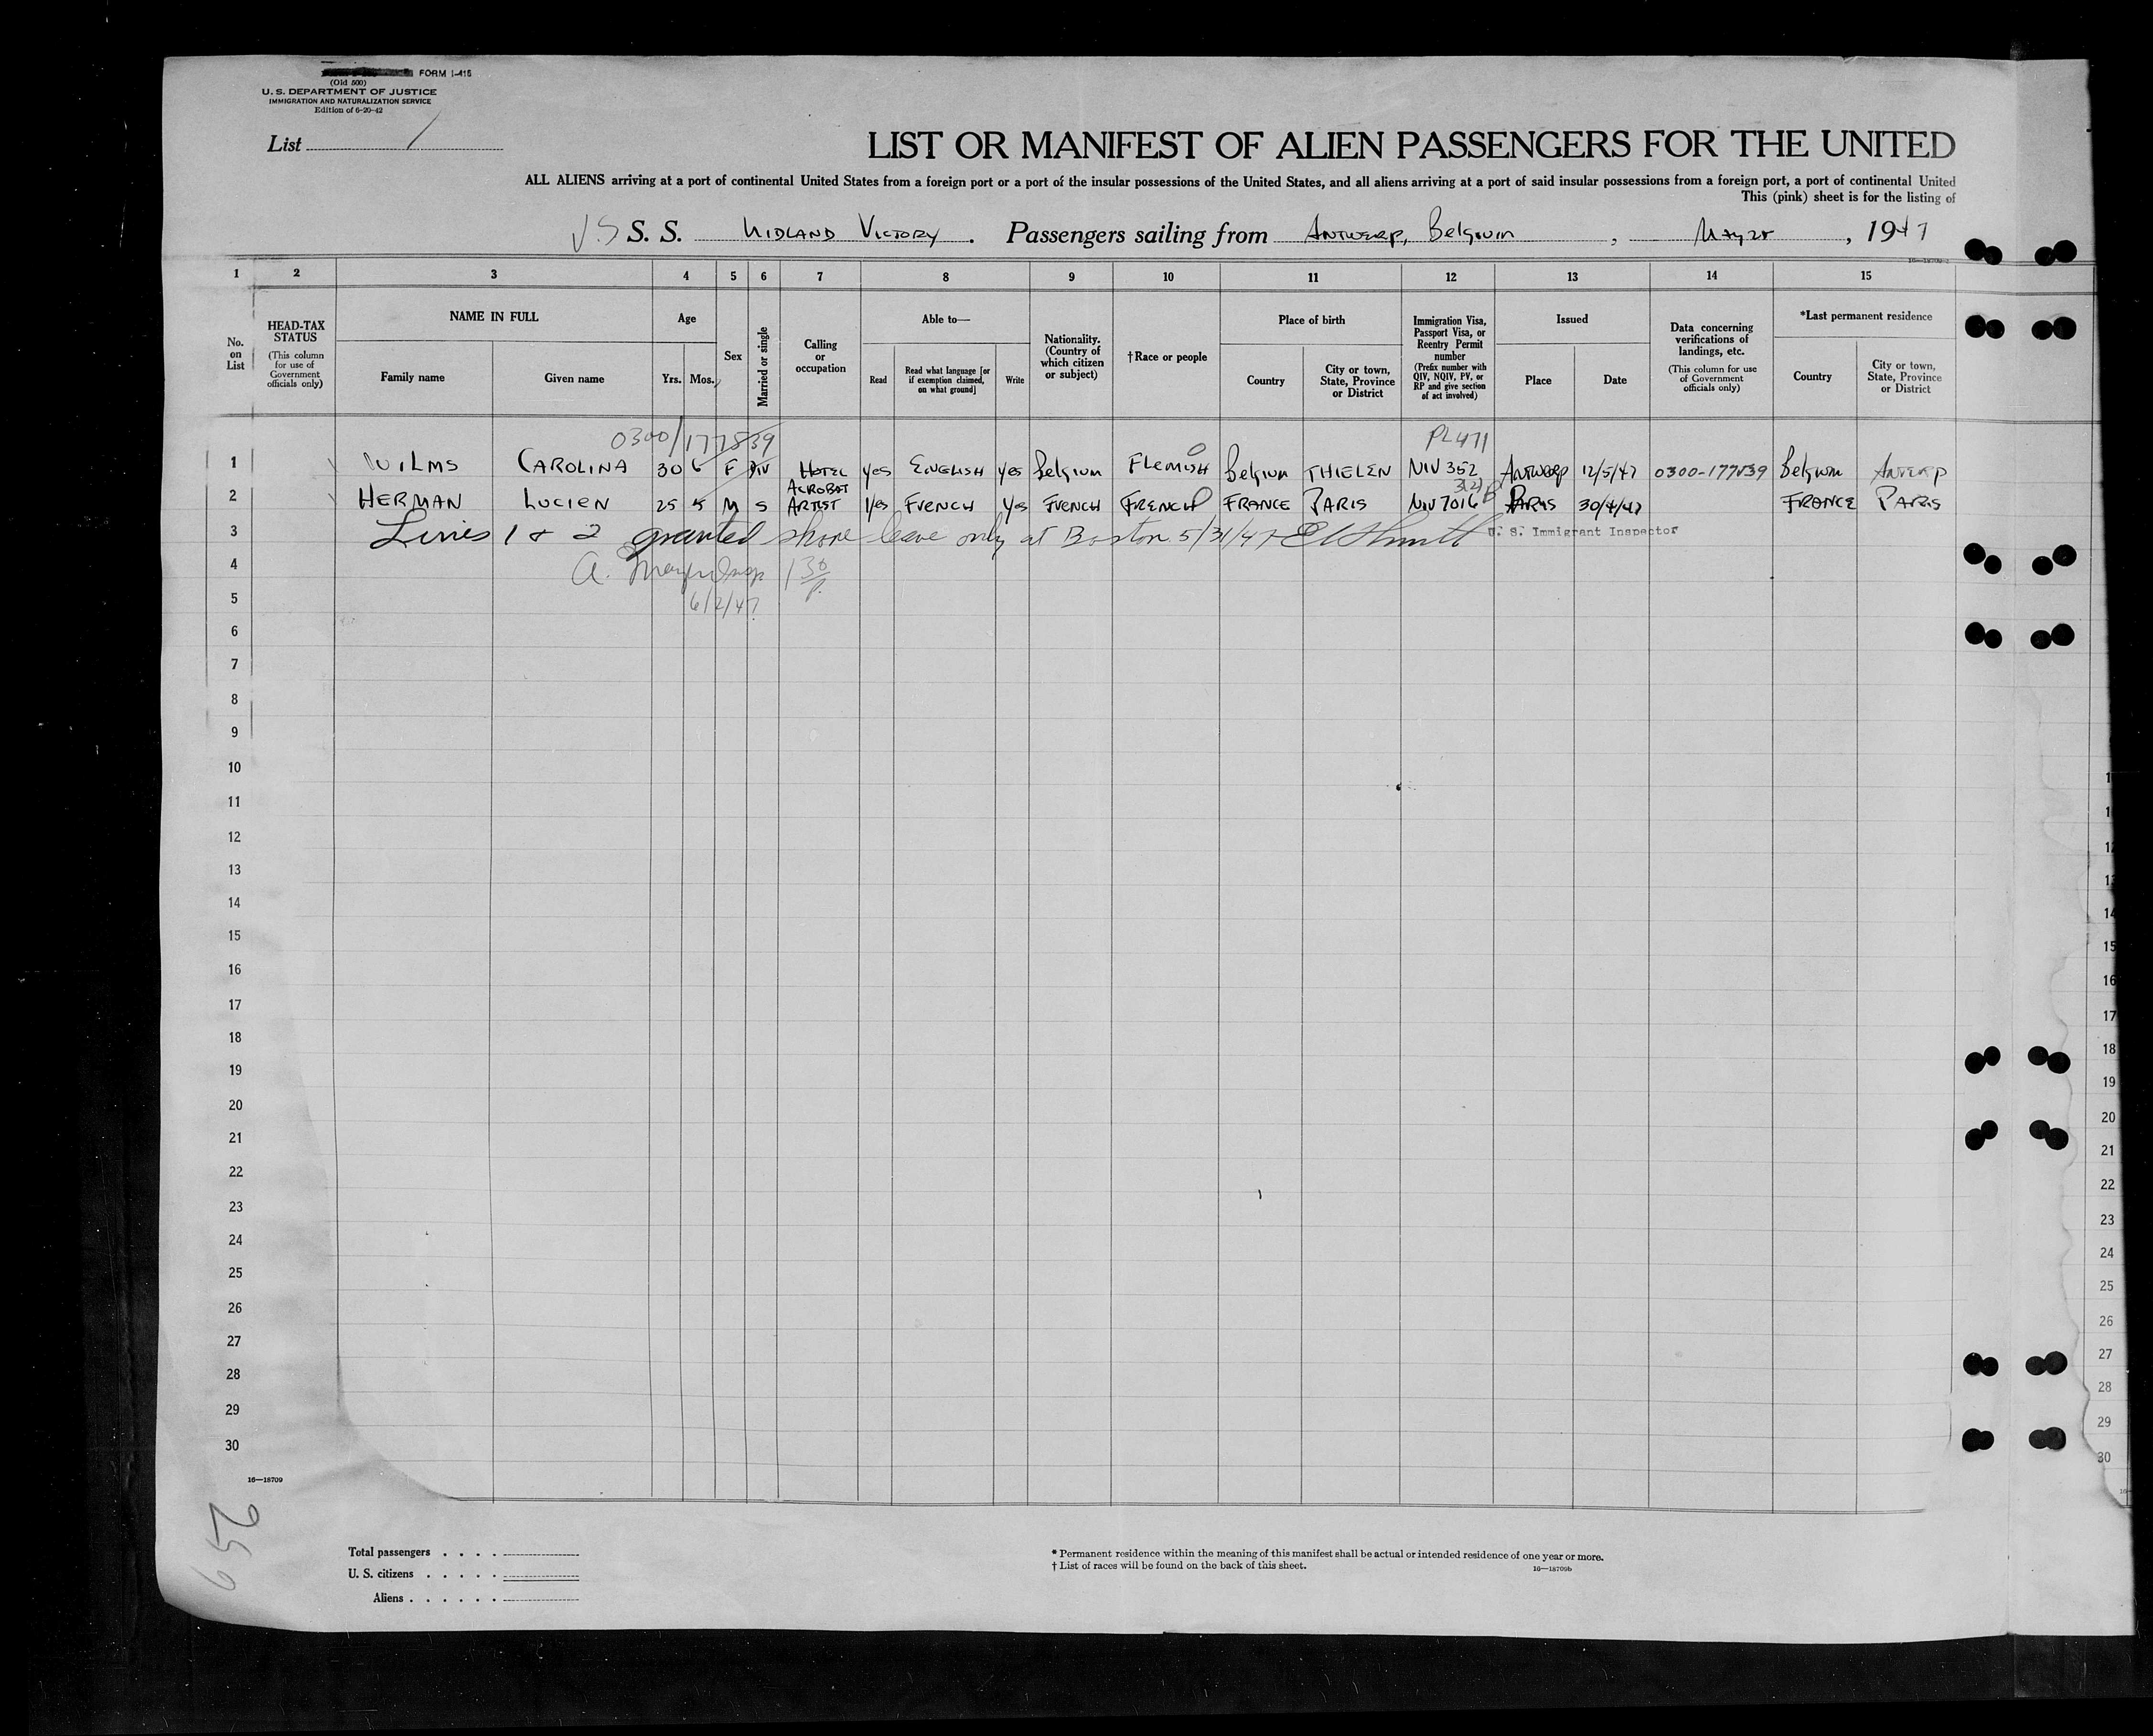 FORM I-415
(Old 500)
U. S. DEPARTMENT OF JUSTICE
IMMIGRATION AND NATURALIZATION SERVICE
Edition of 6-20-42
List 1
LIST OR MANIFEST OF ALIEN PASSENGERS FOR THE UNITED
ALL ALIENS arriving at a port of continental United States from a foreign port or a port of the insular possessions of the United States, and all aliens arriving at a port of said insular possessions from a foreign port, a port of continental United
This (pink) sheet is for the listing of
S. S. MIDLAND VICTORY. Passengers sailing from ANTWERP, Belgium, May 28, 1947
1 2 3 4 5 6 7 8 9 10 11 12 13 14 15
No. on List
HEAD-TAX STATUS
(This column for use of Government officials only)
NAME IN FULL
Family name
Given name
Age
Yrs. Mos.
Sex
Married or single
Calling or occupation
Able to—
Read
Read what language [or if exemption claimed, on what ground]
Write
Nationality. (Country of which citizen or subject)
†Race or people
Place of birth
Country
City or town, State, Province or District
Immigration Visa, Passport Visa, or Reentry Permit number
(Prefix number with QIV, NQIV, PV, or RP and give section of act involved)
Issued
Place
Date
Data concerning verifications of landings, etc.
(This column for use of Government officials only)
*Last permanent residence
Country
City or town, State, Province or District
0300/177839 PL 471
1 WILMS CAROLINA 30 6 F DIV HOTEL yes ENGLISH yes Belgium FLEMISH Belgium THIELEN NIV 352 ANTWERP 12/5/47 0300-177839 Belgium ANTERP
3(2)
2 HERMAN LUCIEN 25 5 M S ACROBAT ARTIST yes FRENCH yes FRENCH FRENCH FRANCE PARIS NIV 7016 PARIS 30/4/47 FRANCE PARIS
3 Lines 1 & 2 granted shore leave only at Boston 5/31/47 U. S. Immigrant Inspector
4 A. 130
5 6/2/47
6
7
8
9
10
11
12
13
14
15
16
17
18
19
20
21
22
23
24
25
26
27
28
29
30
16—18709
659
Total passengers
U. S. citizens
Aliens
* Permanent residence within the meaning of this manifest shall be actual or intended residence of one year or more.
† List of races will be found on the back of this sheet.
16—18709b